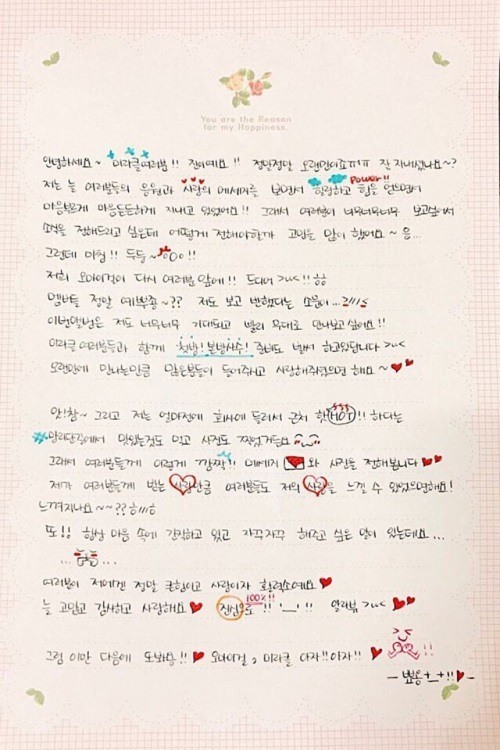 You are the Reason
for my Happiness.
안녕하세요~ 미라클여러분!! 진이에요!! 정말정말 오랜만이죠ㅠㅠㅠ 잘 지내셨나요~?
저는 늘 여러분들의 응원과 사랑의 메세지를 보면서 힐링하고 힘을 얻으면서
Power!!
마음뿌듯하게 지내고 있었어요!! 그래서 여러분이 너무너무너무 보고싶어서
소식을 전해드리고 싶은데 어떻게 전해야할까 고민을 많이 했어요~ 음...
그런데 마침!! 두둥~ !!
저희 오마이걸이 다시 여러분 앞에!! 드디어 >_<!! ㅎㅎ
멤버들 정말 예쁘죵~?? 저도 보고 반했다는 소문이...
이번앨범은 저도 너무너무 기대되고 빨리 무대로 만나보고싶어요!!
미라클 여러분들과 함께 첫방! 본방사수! 준비도 벌써 하고있답니다 >_<
오랜만에 만나는만큼 많은분들이 들어주시고 사랑해주셨으면 해요~ ♥♥
앗!참~ 그리고 저는 얼마전에 회사에 들러서 근처 핫HOT!! 하다는
망리단길에서 맛있는것도 먹고 사진도 찍었거든요
그래서 여러분들께 이렇게 깜짝!! 메세지 와 사진을 전해봅니다 ♥♥
제가 여러분들께 받는 사랑만큼 여러분들도 저의 사랑을 느낄 수 있었으면해요!
느껴지나요~~??
또!! 항상 마음 속에 간직하고 있고 자꾸자꾸 해주고 싶은 말이 있는데요...
...
여러분이 저에겐 정말 큰힘이고 사랑이자 활력소에요 ♥
늘 고맙고 감사하고 사랑해요 ♥ 진심으로!! '_'!! 알라뷰 >_< ♥♥
100%!!
그럼 이만 다음에 또봐요!! ♥ 오마이걸, 미라클 아자!!아자!! ♥
- 뿅용 +_+!! ♥ -